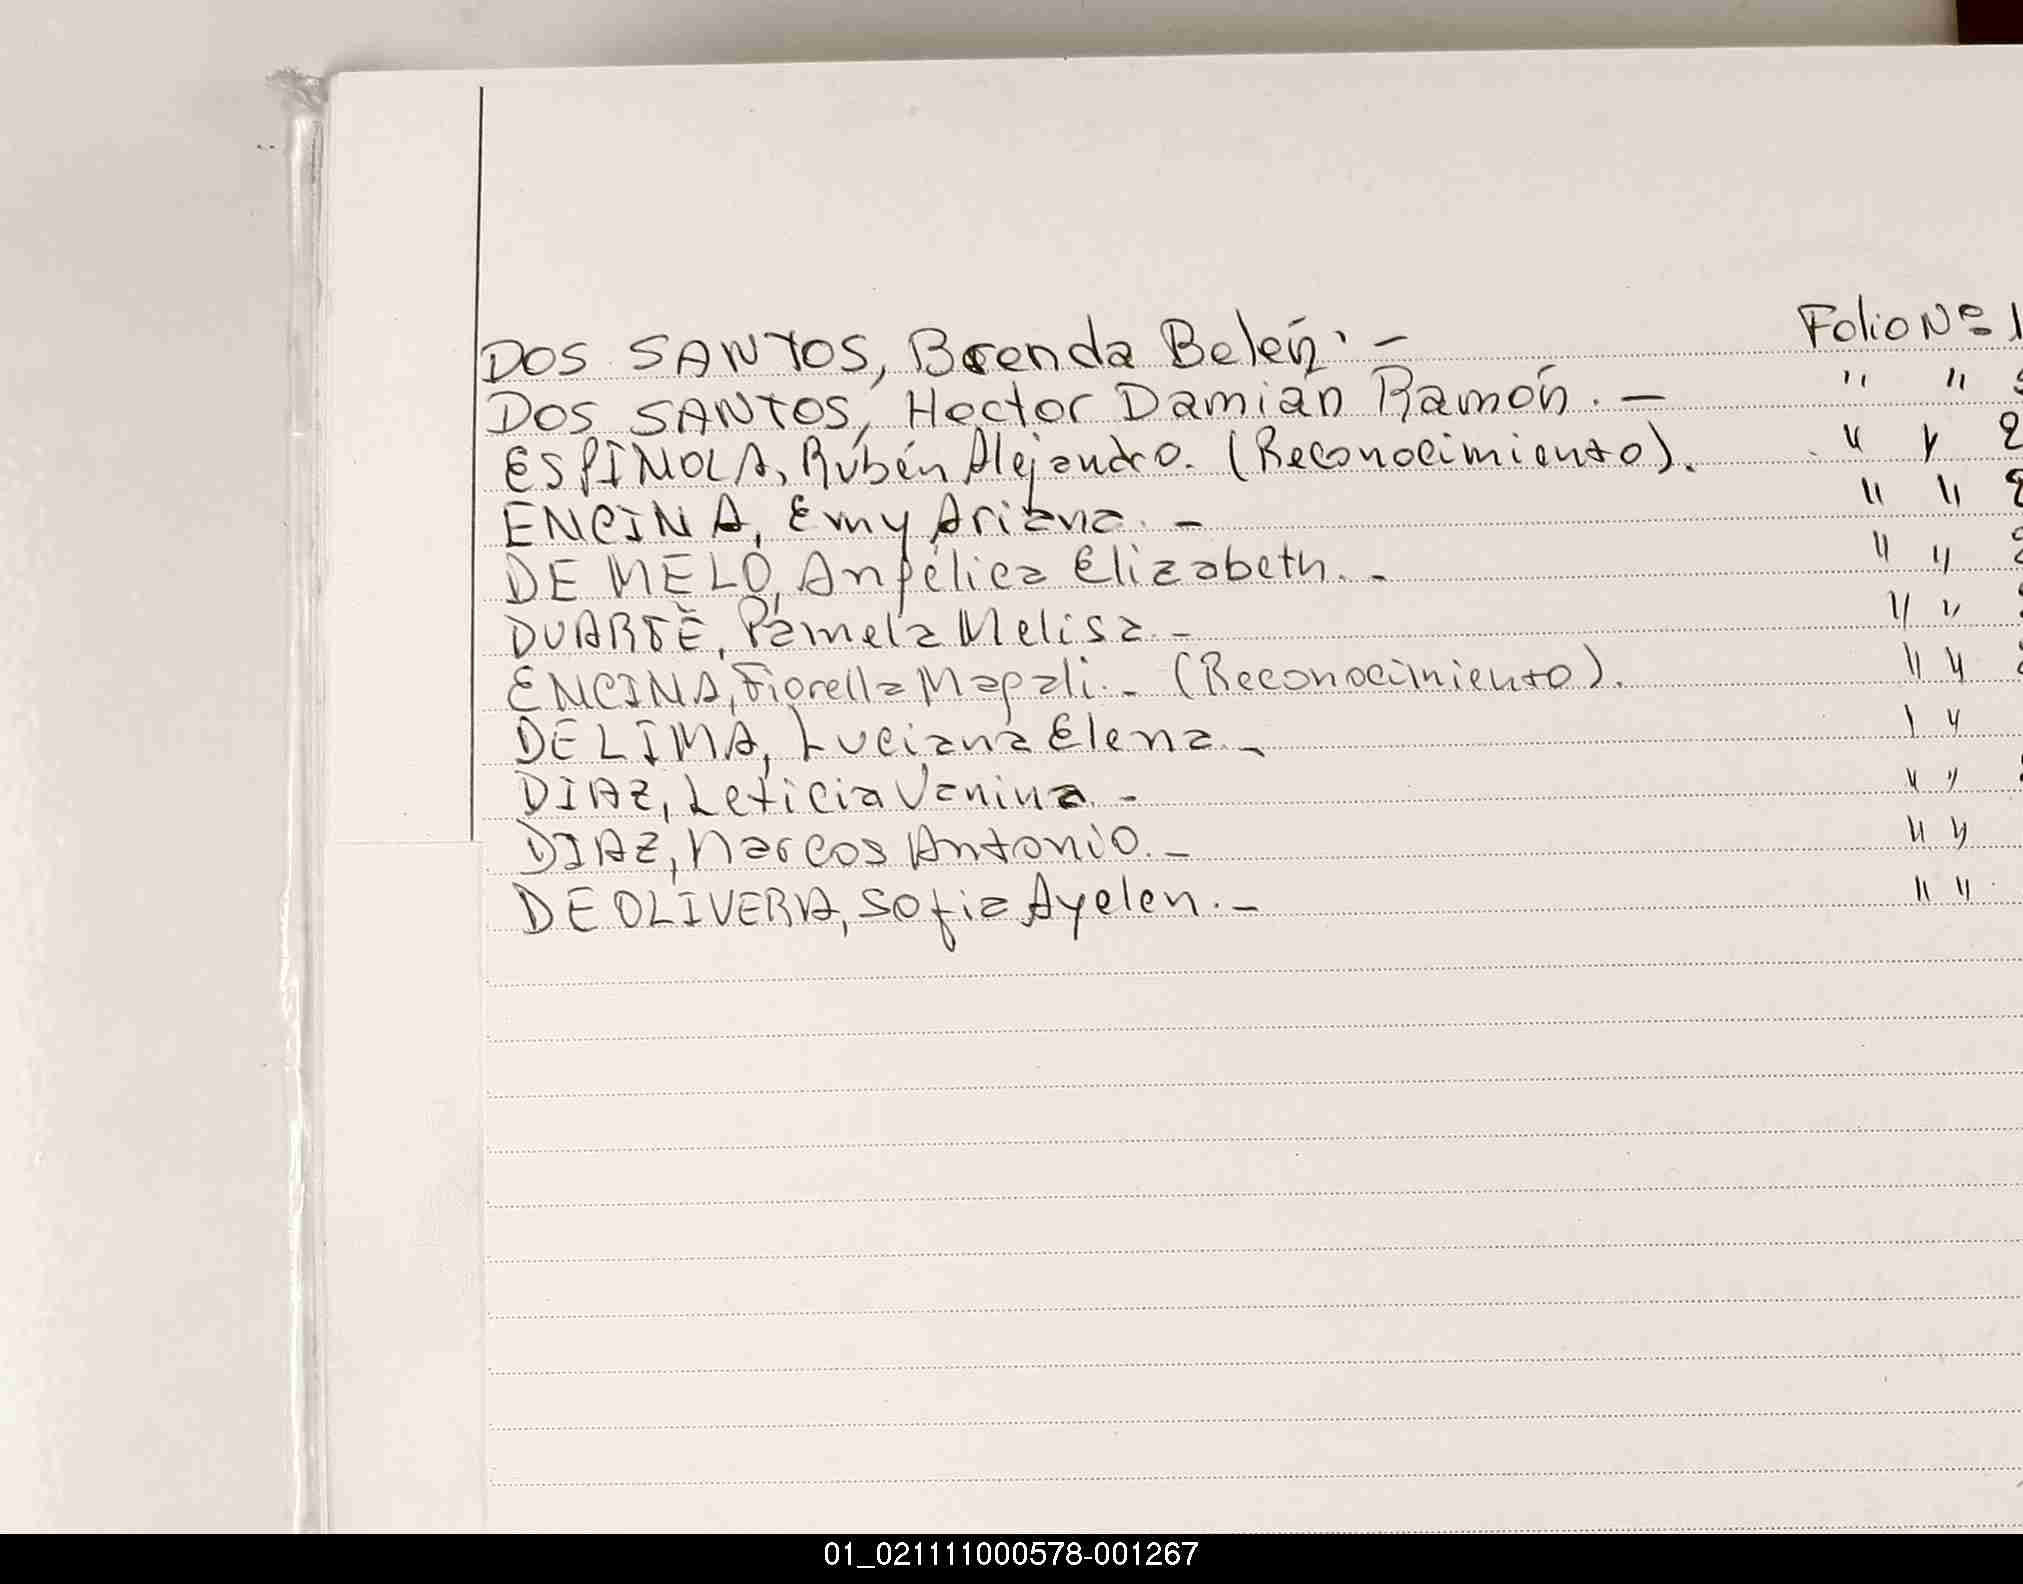 DOS SANTOS, Brenda Belén. - Folio Nº 1
DOS SANTOS, Hector Damián Ramón. - " "
ESPÍNOLA, Rubén Alejandro. (Reconocimiento). " " 2
ENCINA, Emy Ariana. - " "
DE MELO, Angélica Elizabeth. - " "
DUARTE, Pamela Melisa. - " "
ENCINA, Fiorella Magali. - (Reconocimiento). " "
DE LIMA, Luciana Elena. - " "
DIAZ, Leticia Vanina. - " "
DIAZ, Marcos Antonio. - " "
DE OLIVERA, Sofia Ayelen. - " "
01_021111000578-001267